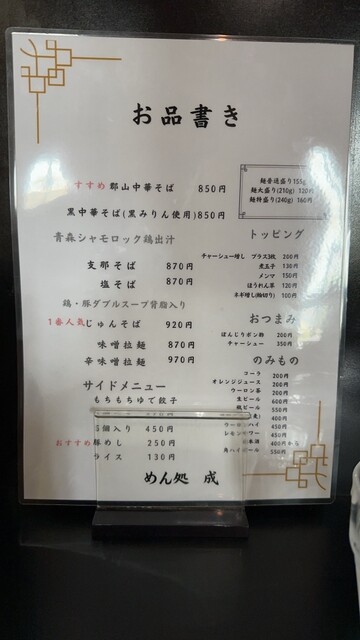 お品書き
すすめ 郡山中華そば 850円
黒中華そば(黒みりん使用)850円
麺普通盛り155g
麺大盛り(210g) 120円
麺特盛り(240g) 160円
青森シャモロック鶏出汁
支那そば 870円
塩そば 870円
鶏・豚ダブルスープ背脂入り
1番人気 じゅんそば 920円
味噌拉麺 870円
辛味噌拉麺 970円
サイドメニュー
もちもちゆで餃子
個入り 450円
おすすめ 豚めし 250円
ライス 130円
トッピング
チャーシュー増し プラス3枚 200円
煮玉子 130円
メンマ 150円
ほうれん草 120円
ネギ増し(輪切り) 100円
おつまみ
ぼんじりポン酢 200円
チャーシュー 350円
のみもの
コーラ 200円
オレンジジュース 200円
ウーロン茶 200円
生ビール 600円
瓶ビール 550円
400円
ウーロンハイ 400円
レモンサワー 400円
日本酒 400円から
角ハイボール 550円
めん処 成